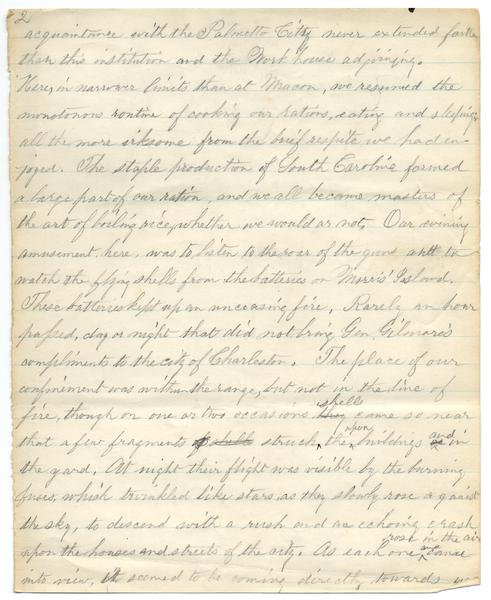 2
acquaintance with the Palmetto City never extended farther
than this institution and the Work house adjoining.
Here, in narrower limits than at Macon, we resumed the
monotonous routine of cooking our rations, eating and sleeping,
all the more irksome from the brief respite we had en-
joyed. The staple production of South Carolina formed
a large part of our ration, and we all became masters of
the art of boiling rice, whether we would or not. Our evening
amusement, here, was to listen to the roar of the guns and to
watch the flying shells from the batteries on Morris' Island.
These batteries kept up an unceasing fire. Rarely an hour
passed, day or night that did not bring Gen. Gilmore's
compliments to the city of Charleston. The place of our
confinement was within the range, but not in the line of
fire, though on one or two occasions shells came so near
that a few fragments struck upon the buildings and in
the yard. At night their flight was visible by the burning
fuses, which twinkled like stars, as they slowly rose against
the sky, to descend with a rush and an echoing crash
upon the houses and streets of the city. As each one rose in the air and came
into view, it seemed to be coming directly towards